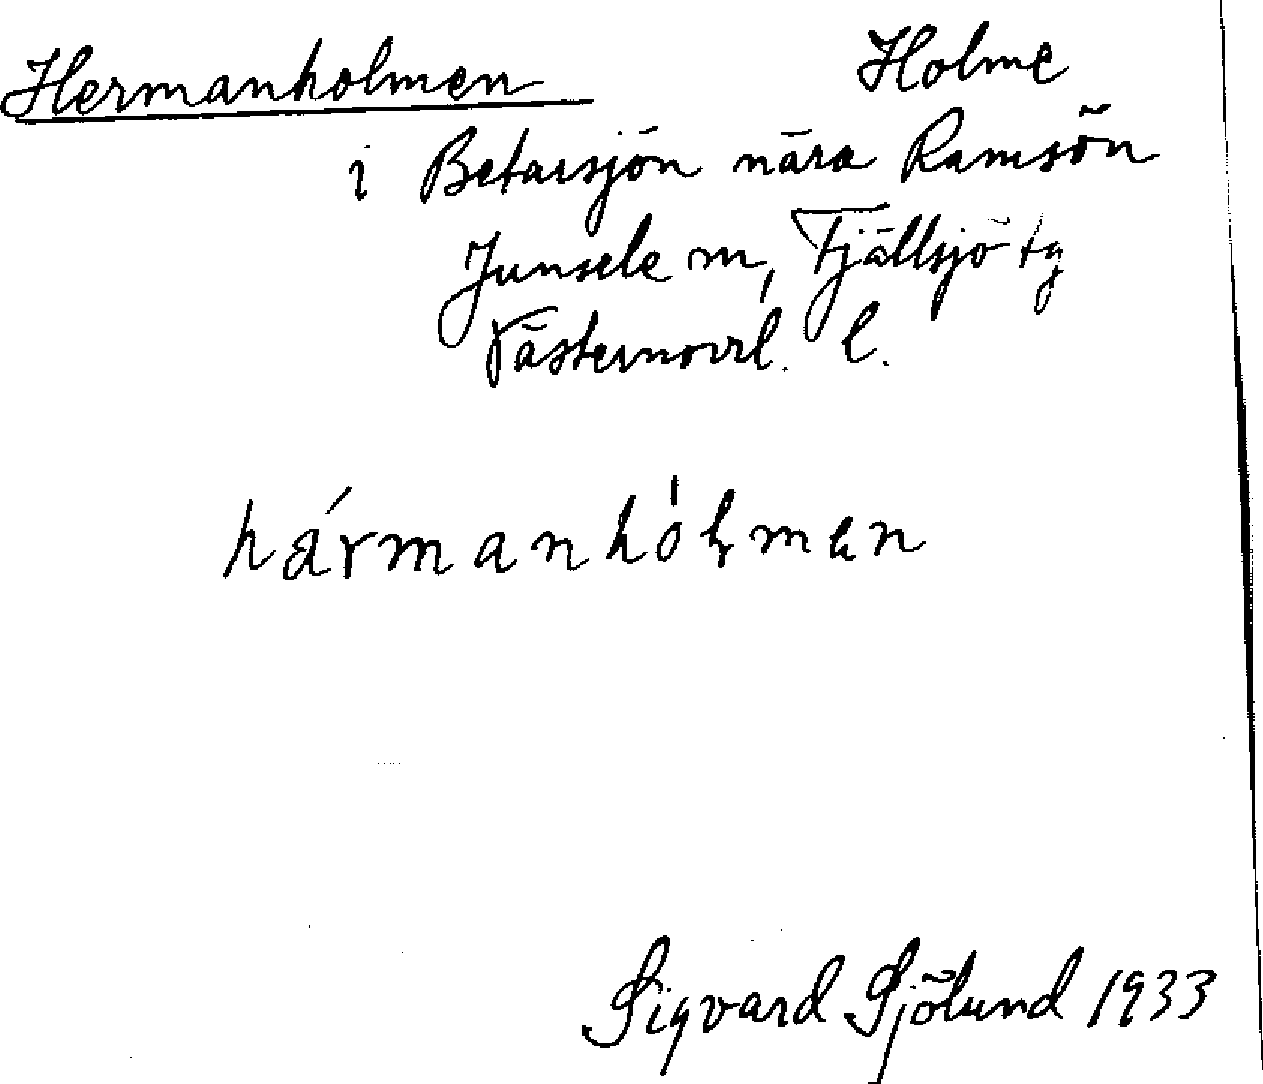 Hermanholmen Holme
i Betarsjön nära Ramsön
Junsele m, Fjällsjö tg
Västernorrl. l.
hármanhólmen
Sigvard Sjölund 1933